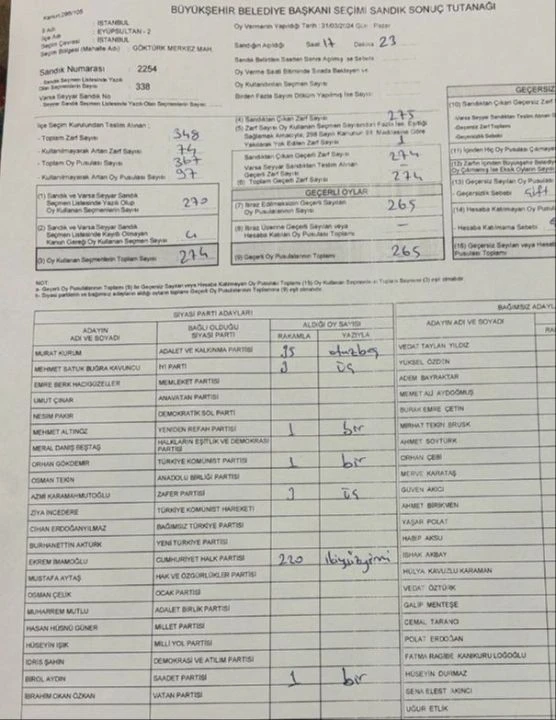 BÜYÜKŞEHİR BELEDİYE BAŞKANI SEÇİMİ SANDIK SONUÇ TUTANAĞI
Kanun:298/105
İl Adı : İSTANBUL
İlçe Adı : EYÜPSULTAN - 2
Seçim Çevresi : İSTANBUL
Seçim Bölgesi (Mahalle Adı) : GÖKTÜRK MERKEZ MAH.
Oy Vermenin Yapıldığı Tarih : 31/03/2024 Gün : Pazar
Sandığın Açıldığı Saat 17 Dakika 23
Sandık Numarası : 2254
Sandık Seçmen Listesinde Yazılı Olan Seçmenlerin Sayısı : 338
Varsa Seyyar Sandık No
Oy Kullandırılan Seçmen Sayısı
Birden Fazla Sayım Döküm Yapılmış İse Sayısı
İlçe Seçim Kurulundan Teslim Alınan ;
- Toplam Zarf Sayısı 348
- Kullanılmayarak Artan Zarf Sayısı 74
- Toplam Oy Pusulası Sayısı 367
- Kullanılmayarak Artan Oy Pusulası Sayısı 97
(1) Sandık ve Varsa Seyyar Sandık Seçmen Listesinde Yazılı Olup Oy Kullanan Seçmenlerin Sayısı 270
(2) Sandık ve Varsa Seyyar Sandık Seçmen Listesinde Kayıtlı Olmayan Kanun Gereği Oy Kullanan Seçmenlerin Sayısı 4
(3) Oy Kullanan Seçmenlerin Toplam Sayısı 274
(4) Sandıktan Çıkan Zarf Sayısı 275
(5) Zarf Sayısı Oy Kullanan Seçmen Sayısından Fazla İse, Eşitliği Sağlamak Amacıyla, 298 Sayılı Kanunun 98. Maddesine Göre Yakılarak Yok Edilen Zarf Sayısı 1
Sandıktan Çıkan Geçerli Zarf Sayısı 274
Varsa Seyyar Sandıktan Teslim Alınan Geçerli Zarf Sayısı —
(6) Toplam Geçerli Zarf Sayısı 274
GEÇERLİ OYLAR
(7) İtiraz Edilmeksizin Geçerli Sayılan Oy Pusulalarının Sayısı 265
(8) İtiraz Üzerine Geçerli Sayılan veya Hesaba Katılan Oy Pusulası Toplamı —
(9) Geçerli Oy Pusulası Toplamı 265
GEÇERSİZ
(10) Sandıktan Çıkan Geçersiz Zarf
Varsa Seyyar Sandıktan Teslim
Geçersiz Zarf Toplamı
(13) Geçersiz Sayılan Oy Pusulası
Geçersizlik Sebebi
(14) Hesaba Katılmayan Oy Pusulası
Hesaba Katılmama Sebebi
(15) Geçersiz Sayılan veya Hesaba
Pusulası Toplamı
NOT:
SİYASİ PARTİ ADAYLARI
BAĞIMSIZ ADAYL
ADAYIN ADI VE SOYADI BAĞLI OLDUĞU SİYASİ PARTİ ALDIĞI OY SAYISI RAKAMLA YAZIYLA ADAYIN ADI VE SOYADI
MURAT KURUM ADALET VE KALKINMA PARTİSİ 35 otuzbeş VEDAT TAYLAN YILDIZ
MEHMET SATUK BUĞRA KAVUNCU İYİ PARTİ 3 üç YÜKSEL ÖZDİN
EMİRE BERK HACIGÜZELLER MEMLEKET PARTİSİ ADEM BAYRAKTAR
UMUT ÇINAR ANAVATAN PARTİSİ MEMET ALİ AYDOĞMUŞ
NESİM PAKİR DEMOKRATİK SOL PARTİ BURAK EMRE ÇETİN
MEHMET ALTINÖZ YENİDEN REFAH PARTİSİ 1 bir MİRHAT TEKİN BRUSK
MERAL DANIŞ BEŞTAŞ HALKLARIN EŞİTLİK VE DEMOKRASİ PARTİSİ AHMET SOYTÜRK
ORHAN GÖKDEMİR TÜRKİYE KOMÜNİST PARTİSİ 1 bir ORHAN ÇEBİ
OSMAN TEKİN ANADOLU BİRLİĞİ PARTİSİ MERVE KARATAŞ
AZMİ KARAMAHMUTOĞLU ZAFER PARTİSİ 3 üç GÜVEN AKICI
ZİYA İNCEDERE TÜRKİYE KOMÜNİST HAREKETİ AHMET BİRİKMEN
CİHAN ERDOĞANYILMAZ BAĞIMSIZ TÜRKİYE PARTİSİ YAŞAR POLAT
BURHANETTİN AKTÜRK YENİ TÜRKİYE PARTİSİ HABİP AKSU
EKREM İMAMOĞLU CUMHURİYET HALK PARTİSİ 220 ikiyüzyirmi İSHAK AKBAY
MUSTAFA AYTAŞ HAK VE ÖZGÜRLÜKLER PARTİSİ HÜLYA KAVUZLU KARAMAN
OSMAN ÇELİK OCAK PARTİSİ VEDAT ÖZTÜRK
MUHARREM MUTLU ADALET BİRLİK PARTİSİ GALİP MENTEŞE
HASAN HÜSNÜ GÜNER MİLLET PARTİSİ CEMAL TARANO
HÜSEYİN IŞIK MİLLİ YOL PARTİSİ POLAT ERDOĞAN
İDRİS ŞAHİN DEMOKRASİ VE ATILIM PARTİSİ FATMA RAGİBE KANIKURU LOĞOĞLU
BİROL AYDIN SAADET PARTİSİ 1 bir HÜSEYİN DURMAZ
İBRAHİM OKAN ÖZKAN VATAN PARTİSİ SENA ELEST AKINCI
UĞUR ETLİK